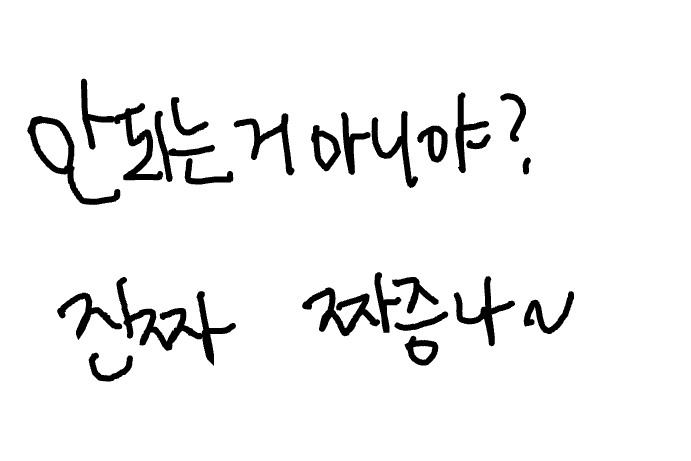 안되는거 아니야?
잔짜 짜증나~